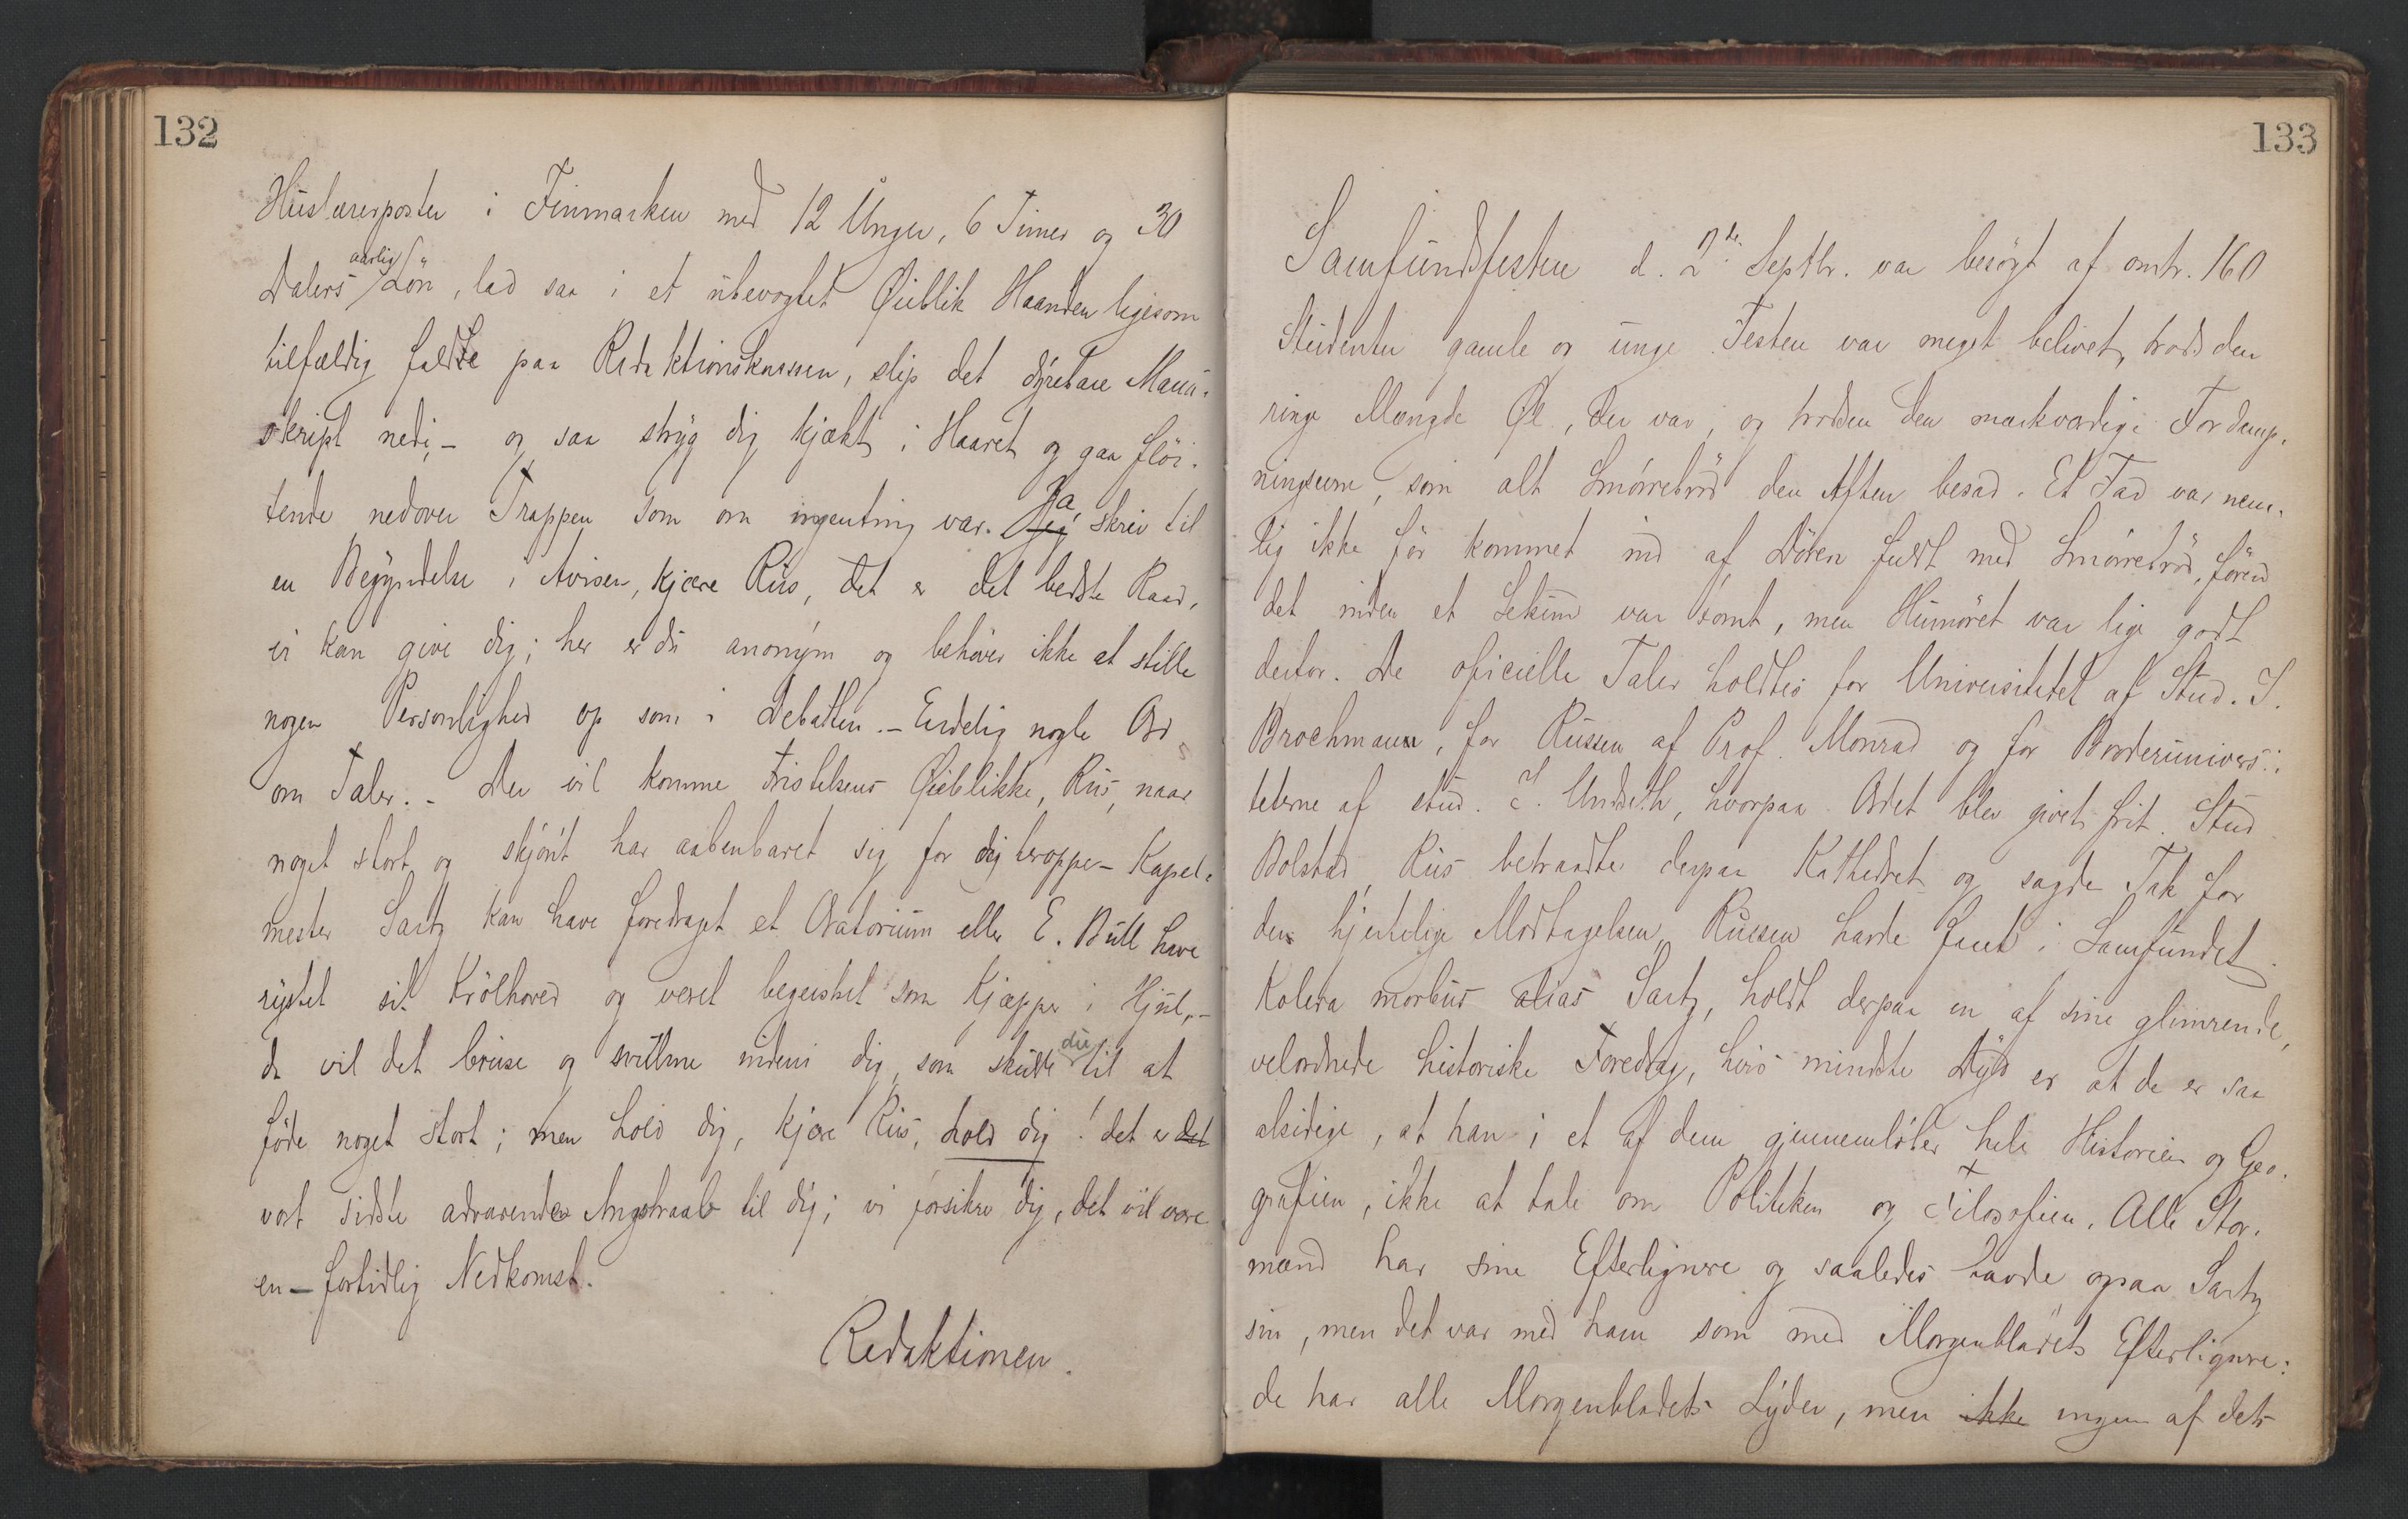 132
Huslærerposten i Finmarken med 12 Unger, 6 Timer og 30
Dalers aarlig Lön, lad saa i et ubevogtet Øieblik Haanden ligesom
tilfældig falde paa Redaktionskassen, slip det dyrebare Manu-
skript nedi, – og saa stryg dig kjækt i Haaret og gaa flöi-
tende nedover Trappen som om ingenting var. Ja, skriv til
en Begyndelse i Avisen, kjære Rus, det er det bedste Raad,
vi kan give dig; her er du anonym og behöver ikke at stille
nogen Personlighed op som i Debatten. – Endelig nogle Ord
om Taler. – Der vil komme Fristelsens Øieblikke, Rus, naar
noget stort og skjönt har aabenbaret sig for dig heroppe – Kapel-
mester Sartz kan have foredraget et Oratorium eller E. Bull have
rystet sit Krölhoved og været begeistret som Kjæpper i Hjul, –
da vil det bruse og svulme indeni dig, som skulde du til at
föde noget stort; men hold dig, kjære Rus, hold dig! det er det
vort sidste advarende Angstraab til dig; vi forsikre dig, det vil være
en – fortidlig Nedkomst.
Redaktionen.
133
Samfundsfesten d. 2de Septbr. var besögt af omtr. 160
Studenter gamle og unge. Festen var meget belivet, trods den
ringe Mængde Øl, der var, og trods den mærkværdige Fordamp-
ningsevne, som alt Smörrebröd den Aften besad. Et Fad var nem-
lig ikke för kommet ind af Dören fuldt med Smörrebröd, förend
det inden et Sekund var tomt, men Humöret var lige godt
derfor. De officielle Taler holdtes for Universitetet af Stud. J.
Brochmann, for Russen af Prof. Monrad og for Broderuniversi-
teterne af stud. J. Undseth, hvorpaa Ordet blev givet frit. Stud
Bolstad, Rus betraadte derpaa Kathedret og sagde Tak for
den hjertelige Modtagelsen, Russen havde faaet i Samfundet.
Kolera morbus alias Sartz, holdt derpaa en af sine glimrende,
velordnede historiske Foredrag, hvis mindste Dyd er at de er saa
alsidige, at han i et af dem gjennemlöber hele Historien og Geo-
grafien, ikke at tale om Politiken og Filosofien. Alle Stor-
mænd har sine Efterlignere og saaledes havde ogsaa Sartz
sin, men det var med ham som med Morgenbladets Efterlignere:
de har alle Morgenbladets Lyder, men ikke ingen af dets